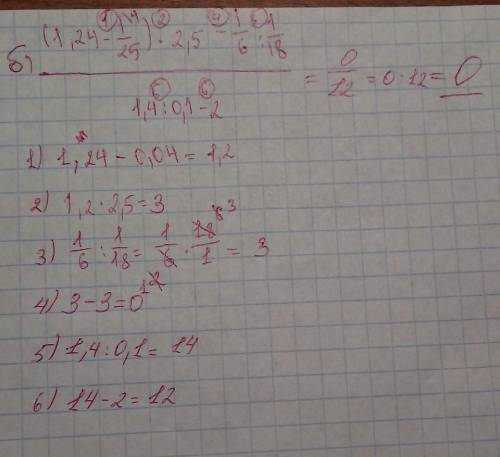 б) (1,24 - 1/25) · 2,5 - 1/6 : 1/18
1,4 : 0,1 - 2
= 0/12 = 0 : 12 = 0
1) 1,24 - 0,04 = 1,2
2) 1,2 · 2,5 = 3
3) 1/6 : 1/18 = 1/6 · 18/1 = 3
4) 3 - 3 = 0
5) 1,4 : 0,1 = 14
6) 14 - 2 = 12